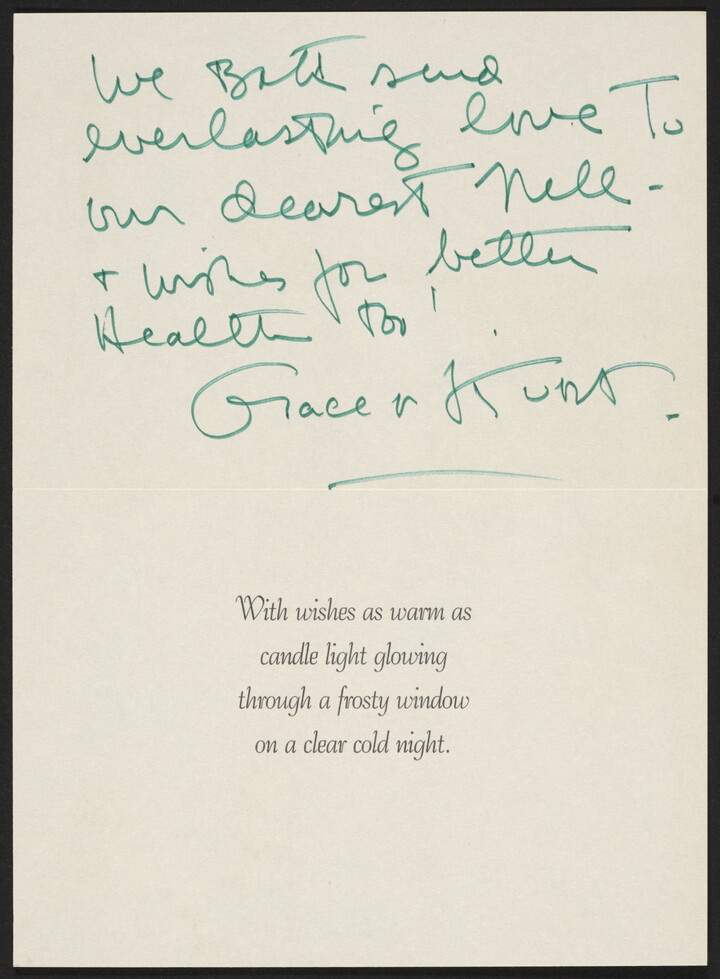 We Both send
everlasting love To
our dearest Nell -
+ wishes for better
Health too!
Grace + Kurt.
With wishes as warm as
candle light glowing
through a frosty window
on a clear cold night.